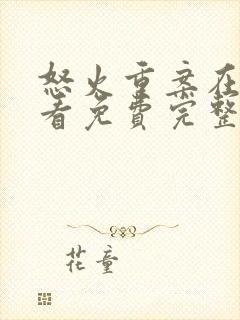 怒火重案在
看免费完整
花童